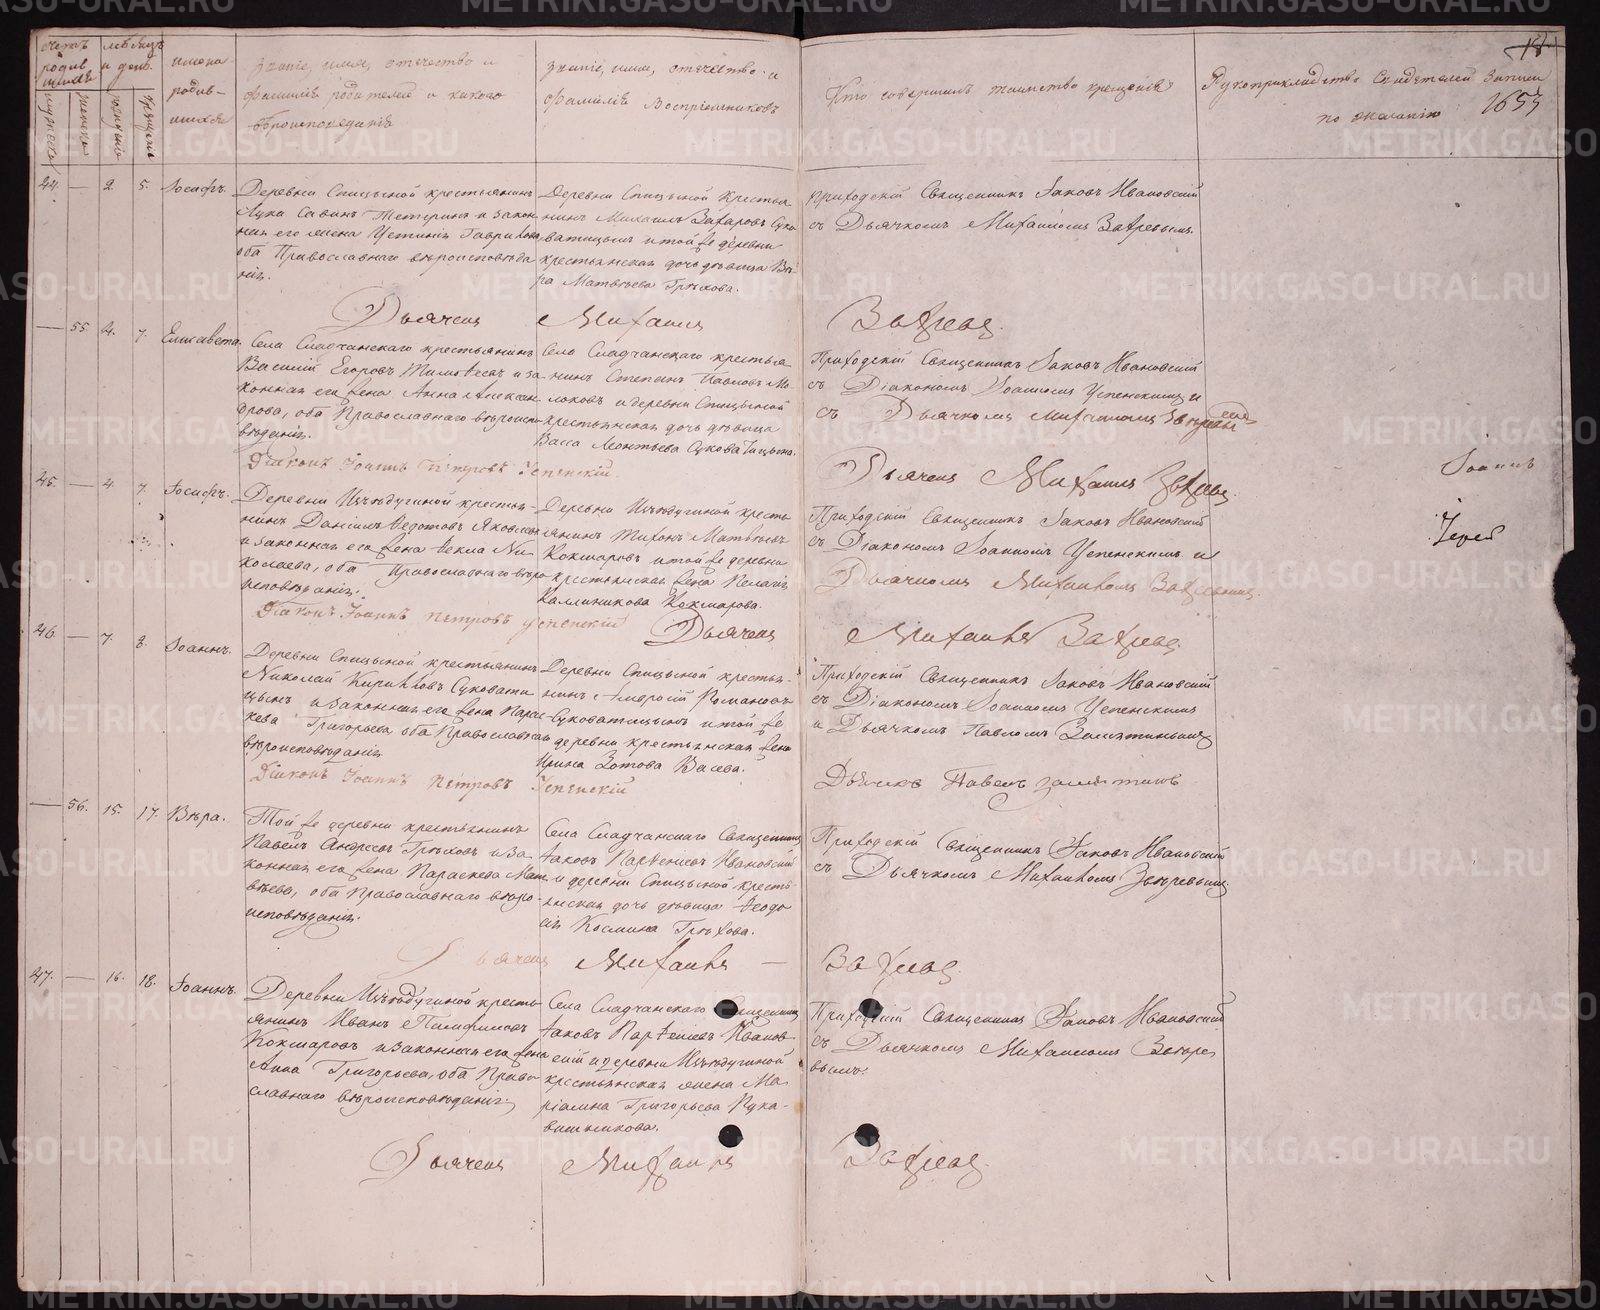 Счетъ родившихся
мѣсяцъ и день
имена родившихся
Званіе, имя, отечество и фамилія родителей и какого вѣроисповѣданія
Званіе, имя, отечество и фамилія воспріемниковъ
Кто совершалъ таинство крещенія
Рукоприкладство свидѣтелей записи по желанію
1655
44. — 2. 5. Іосифъ.
Деревни Спицыной крестьянинъ
Лука Савинъ Тетеринъ и закон-
ная его жена Устинія Гаврилова
оба Православнаго вѣроисповѣда
нія.
Деревни Спицыной крестья
нинъ Михаилъ Захаровъ Суко
ватицынъ и той же деревни
крестьянская дочь дѣвица Вѣ-
ра Матвѣева Грѣхова.
Приходскій Священникъ Іаковъ Ивановскій
съ Дьячкомъ Михаиломъ Звѣревымъ.
Дьячекъ Михаилъ Звѣревъ.
— 55. 4. 7. Елисавета.
Села Сладчанскаго крестьянинъ
Василій Егоровъ Тимофеевъ и за-
конная его жена Анна Алексан
дрова, оба Православнаго вѣроиспо-
вѣданія.
Села Сладчанскаго крестья
нинъ Степанъ Павловъ Мо
локовъ и деревни Спицыной
крестьянская дочь дѣвица
Васса Леонтьева Суковатицына.
Приходскій Священникъ Іаковъ Ивановскій
съ Діакономъ Іоанномъ Успенскимъ и
съ Дьячкомъ Михаиломъ Звѣревымъ
Діаконъ Іоаннъ Петровъ Успенскій.
Дьячекъ Михаилъ Звѣревъ.
Іоаннъ
45. — 4. 7. Іосифъ.
Деревни Изъѣдугиной крестья-
нинъ Даніилъ Федотовъ Яковлевъ
и законная его жена Фекла Ни-
колаева, оба Православнаго вѣро-
исповѣданія.
Деревни Изъѣдугиной кресть
янинъ Тихонъ Матвѣевъ
Кокшаровъ и той же деревни
крестьянская жена Пелагія
Каллиникова Кокшарова.
Приходскій Священникъ Іаковъ Ивановскій
съ Діакономъ Іоанномъ Успенскимъ и
Дьячкомъ Михаиломъ Звѣревымъ.
Іерей
Діаконъ Іоаннъ Петровъ Успенскій
Дьячекъ Михаилъ Звѣревъ.
46. — 7. 8. Іоаннъ.
Деревни Спицыной крестьянинъ
Николай Кирилловъ Суковати
цынъ и законная его жена Парас-
кева Григорьева оба Православнаго
вѣроисповѣданія
Деревни Спицыной крестья-
нинъ Амвросій Романовъ
Суковатицынъ и той же
деревни крестьянская жена
Ирина Зотова Васева.
Приходскій Священникъ Іаковъ Ивановскій
съ Діакономъ Іоанномъ Успенскимъ
и Дьячкомъ Павломъ Замятинымъ
Діаконъ Іоаннъ Петровъ Успенскій
Дьячокъ Павелъ Замятинъ
— 56. 15. 17. Вѣра.
Той же деревни крестьянинъ
Павелъ Андреевъ Грѣховъ и за-
конная его жена Параскева Мат-
вѣева, оба Православнаго вѣро-
исповѣданія.
Села Сладчанскаго Священникъ
Іаковъ Парфеніевъ Ивановскій
и деревни Спицыной кресть-
янская дочь дѣвица Феодо
сія Космина Грѣхова.
Приходскій Священникъ Іаковъ Ивановскій
съ Дьячкомъ Михаиломъ Звѣревымъ.
Дьячекъ Михаилъ — Звѣревъ.
47. — 16. 18. Іоаннъ.
Деревни Изъѣдугиной кресть-
янинъ Иванъ Памфиловъ
Кокшаровъ и законная его жена
Анна Григорьева, оба Право-
славнаго вѣроисповѣданія.
Села Сладчанскаго Священникъ
Іаковъ Парфеніевъ Иванов-
скій и деревни Изъѣдугиной
крестьянская жена Ма-
ріамна Григорьева Рука-
вишникова.
Приходскій Священникъ Іаковъ Ивановскій
съ Дьячкомъ Михаиломъ Звѣре-
вымъ.
Дьячекъ Михаилъ Звѣревъ.
METRIKI.GASO-URAL.RU